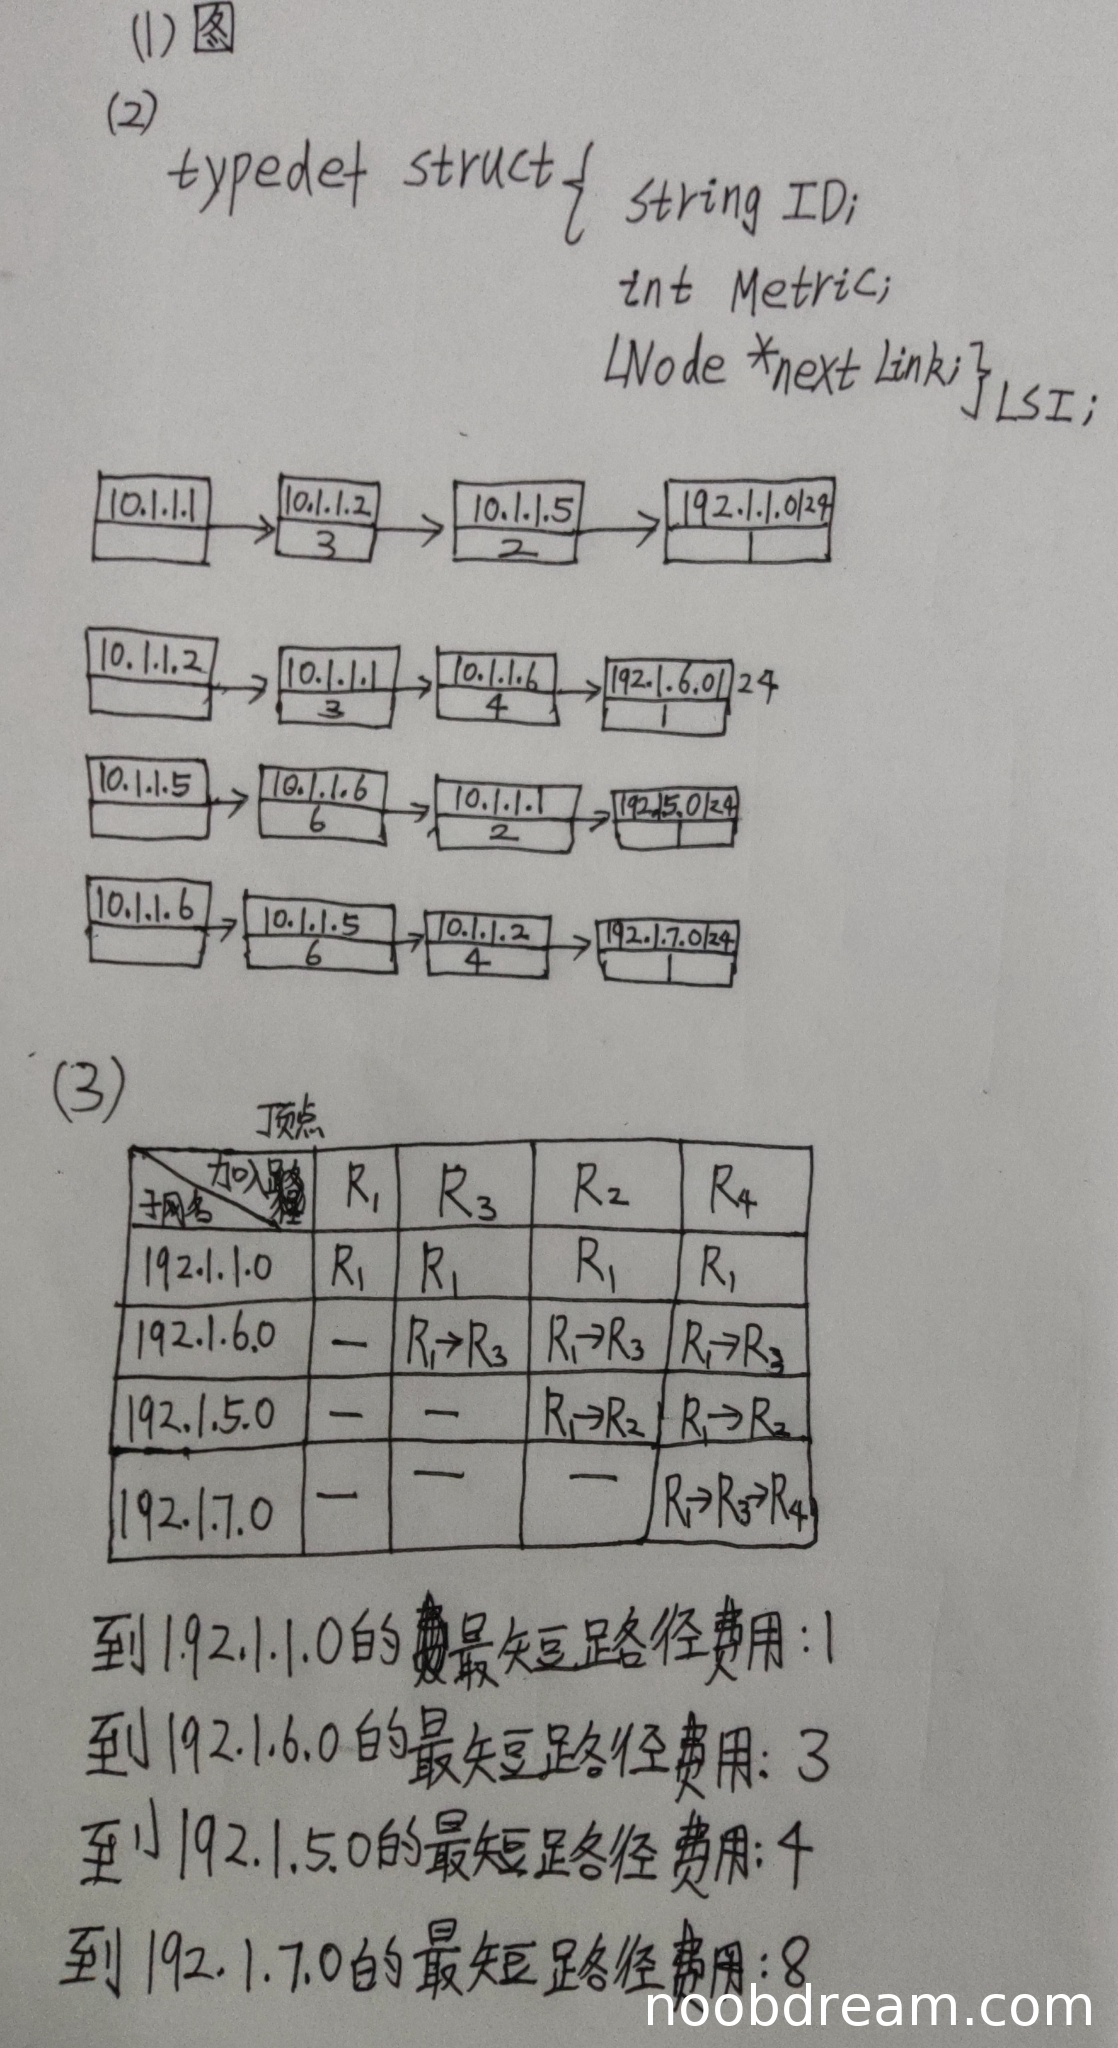 (1) 图
(2)
typedef struct{ string ID;
int Metric;
LNode *next Link;} LSI;
10.1.1.1 10.1.1.2 10.1.1.5 192.1.1.0/24
3 2 1
10.1.1.2 10.1.1.1 10.1.1.6 192.1.6.0/24
3 4 1
10.1.1.5 10.1.1.6 10.1.1.1 192.1.5.0/24
6 2 1
10.1.1.6 10.1.1.5 10.1.1.2 192.1.7.0/24
6 4 1
(3)
顶点
加入路径 R1 R3 R2 R4
子网名
192.1.1.0 R1 R1 R1 R1
192.1.6.0 — R1→R3 R1→R3 R1→R3
192.1.5.0 — — R1→R2 R1→R2
192.1.7.0 — — — R1→R3→R4
到192.1.1.0的最短路径费用:1
到192.1.6.0的最短路径费用:3
到192.1.5.0的最短路径费用:4
到192.1.7.0的最短路径费用:8
noobdream.com